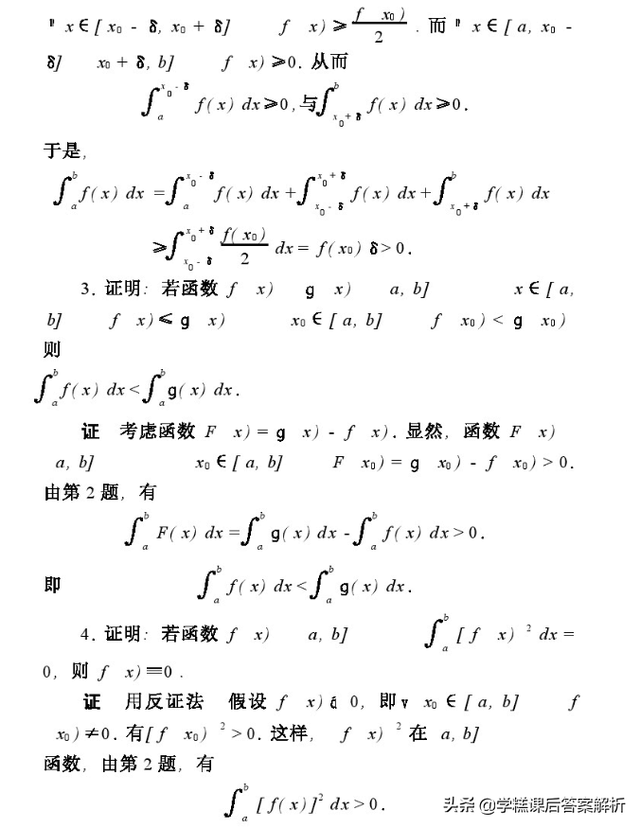 " x∈[ x₀ - δ, x₀ + δ] f x)≥ f x₀) / 2 . 而 " x∈[ a, x₀ -
δ] x₀ + δ, b] f x)≥0. 从而
∫ₐ^{x₀-δ} f( x) dx≥0,与∫_{x₀+δ}^{b} f( x) dx≥0.
于是,
∫ₐ^b f( x) dx =∫ₐ^{x₀-δ} f( x) dx +∫_{x₀-δ}^{x₀+δ} f( x) dx+∫_{x₀+δ}^{b} f( x) dx
≥∫_{x₀-δ}^{x₀+δ} f( x₀) / 2 dx = f( x₀) δ> 0.
3. 证明: 若函数 f x) g x) a, b] x∈[ a,
b] f x)≤ g x) x₀∈[ a, b] f x₀) < g x₀)
则
∫ₐ^b f( x) dx <∫ₐ^b g( x) dx.
证 考虑函数 F x) = g x) - f x). 显然, 函数 F x)
a, b] x₀∈[ a, b] F x₀) = g x₀) - f x₀) > 0.
由第 2 题, 有
∫ₐ^b F( x) dx =∫ₐ^b g( x) dx -∫ₐ^b f( x) dx > 0.
即 ∫ₐ^b f( x) dx <∫ₐ^b g( x) dx.
4. 证明: 若函数 f x) a, b] ∫ₐ^b [ f x) ² dx =
0, 则 f x)≡0 .
证 用反证法 假设 f x) á 0, 即 x₀ ∈[ a, b] f
x₀)≠0. 有[ f x₀) ² > 0. 这样, f x) ² 在 a, b]
函数, 由第 2 题, 有
∫ₐ^b [ f( x)]² dx > 0.
头条 @学糕课后答案解析